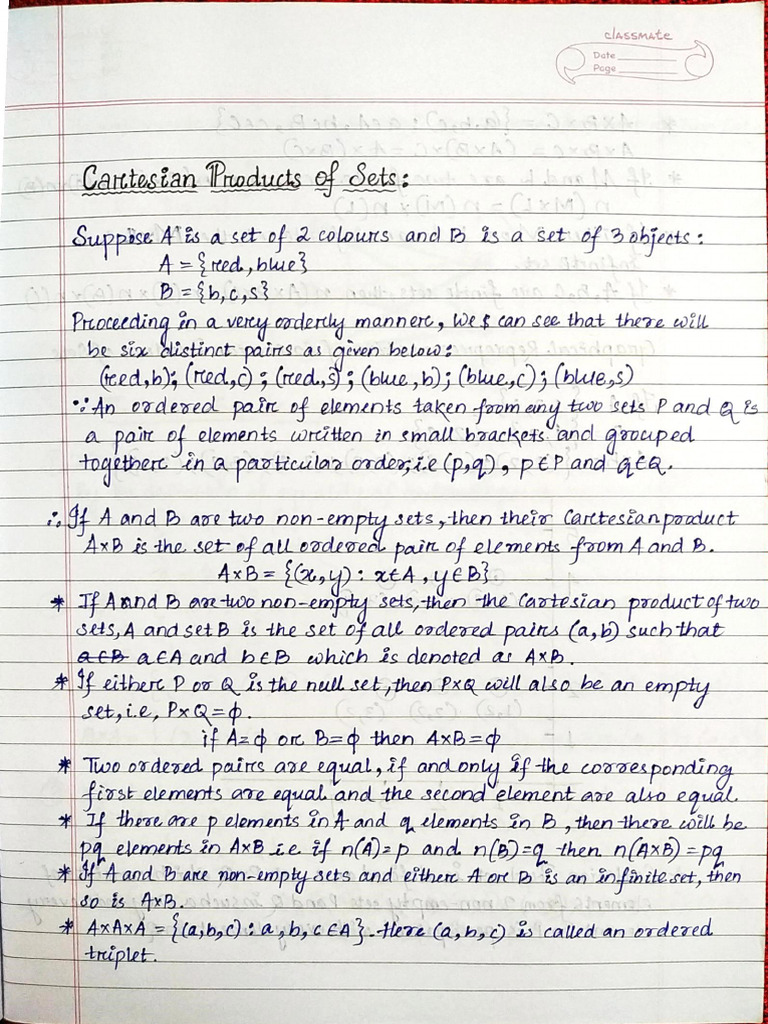 classmate
Date
Page
Cartesian Products of Sets:
Suppose A is a set of 2 colours and B is a set of 3 objects:
A = {red, blue}
B = {b, c, s}
Proceeding in a very orderly manner, We $ can see that there will
be six distinct pairs as given below:
(red, b); (red, c); (red, s); (blue, b); (blue, c); (blue, s)
∵ An ordered pair of elements taken from any two sets P and Q is
a pair of elements written in small brackets and grouped
together in a particular order, i.e (p,q), p∈P and q∈Q.
∴ If A and B are two non-empty sets, then their Cartesian product
A×B is the set of all ordered pair of elements from A and B.
A×B = {(x,y): x∈A, y∈B}
* If A and B are two non-empty sets, then the Cartesian product of two
sets, A and set B is the set of all ordered pairs (a,b) such that
a∈B a∈A and b∈B which is denoted as A×B.
* If either P or Q is the null set, then P×Q will also be an empty
set, i.e, P×Q=ϕ.
if A=ϕ or B=ϕ then A×B=ϕ
* Two ordered pairs are equal, if and only if the corresponding
first elements are equal and the second element are also equal.
* If there are p elements in A and q elements in B, then there will be
pq elements in A×B i.e if n(A)=p and n(B)=q then n(A×B)=pq
* If A and B are non-empty sets and either A or B is an infinite set, then
so is A×B.
* A×A×A = {(a,b,c): a, b, c ∈A}. Here (a, b, c) is called an ordered
triplet.